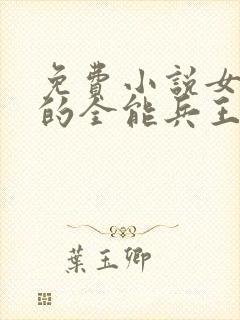 免費小說女
的全能兵王
葉玉卿